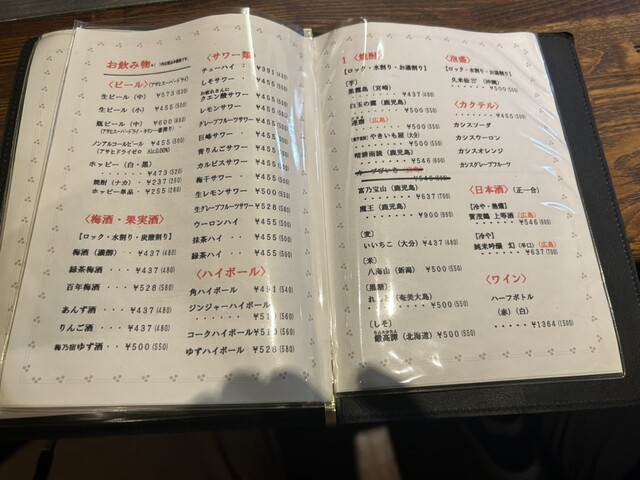 お飲み物
〈ビール〉(アサヒスーパードライ)
生ビール(中) ¥573(630)
生ビール(小) ¥455(500)
瓶ビール(中) ¥600(660)
(アサヒスーパードライ・キリン一番搾り)
ノンアルコールビール ¥455(500)
(アサヒドライゼロ Alc.0.00%)
ホッピー(白・黒)
・・・・・・¥473(520)
焼酎(ナカ)・¥237(260)
ホッピー単品・¥255(280)
〈梅酒・果実酒〉
【ロック・水割り・炭酸割り】
梅酒(濃醇)・・¥437(480)
緑茶梅酒・・・¥437(480)
百年梅酒・・・¥528(580)
あんず酒・・・¥437(480)
りんご酒・・・¥437(480)
梅乃宿ゆず酒・・¥500(550)
〈サワー類〉
チューハイ・・¥391(430)
レモンサワー・¥455(500)
クエン酸サワー ¥455(500)
レモンサワー ¥455(500)
グレープフルーツサワー ¥455(500)
巨峰サワー・・¥455(500)
青りんごサワー ¥455(500)
カルピスサワー ¥455(500)
梅干サワー・・¥455(500)
生レモンサワー ¥500(550)
生グレープフルーツサワー ¥528(580)
ウーロンハイ ¥455(500)
抹茶ハイ・・¥455(500)
緑茶ハイ・・¥455(500)
〈ハイボール〉
角ハイボール・¥491(540)
ジンジャーハイボール
・・・・・・¥510(560)
コークハイボール ¥510(560)
ゆずハイボール ¥528(580)
〈焼酎〉
【ロック・水割り・お湯割り】
(芋)
黒霧島(宮崎)
・・・・・¥437(480)
白玉の露(鹿児島)
・・・・・¥500(550)
達磨(広島)
・・・・・¥500(550)
やきいも屋(大分)
・・・・・¥500(550)
晴耕雨読(鹿児島)
・・・・・¥546(600)
¥546(600)
富乃宝山(鹿児島)
・・・・・¥637(700)
魔王(鹿児島)
・・・・・¥900(990)
(麦)
いいちこ(大分)¥437(480)
[米]
八海山(新潟)¥500(550)
[黒糖]
れんと(奄美大島)
・・・・・¥500(550)
(しそ)
鍛高譚(北海道)¥500(550)
〈泡盛〉
【ロック・水割り・お湯割り】
久米仙(沖縄)
・・・・・¥500(550)
〈カクテル〉
・・・・・¥455(500)
カシスソーダ
カシスウーロン
カシスオレンジ
カシスグレープフルーツ
〈日本酒〉(正一合)
[冷や・熱燗]
賀茂鶴 上等酒(広島)
・・・・・¥528(580)
[冷や]
純米吟醸 幻(辛口)(広島)
・・・・・¥637(700)
〈ワイン〉
ハーフボトル
(赤)(白)
・・¥1364(1,500)